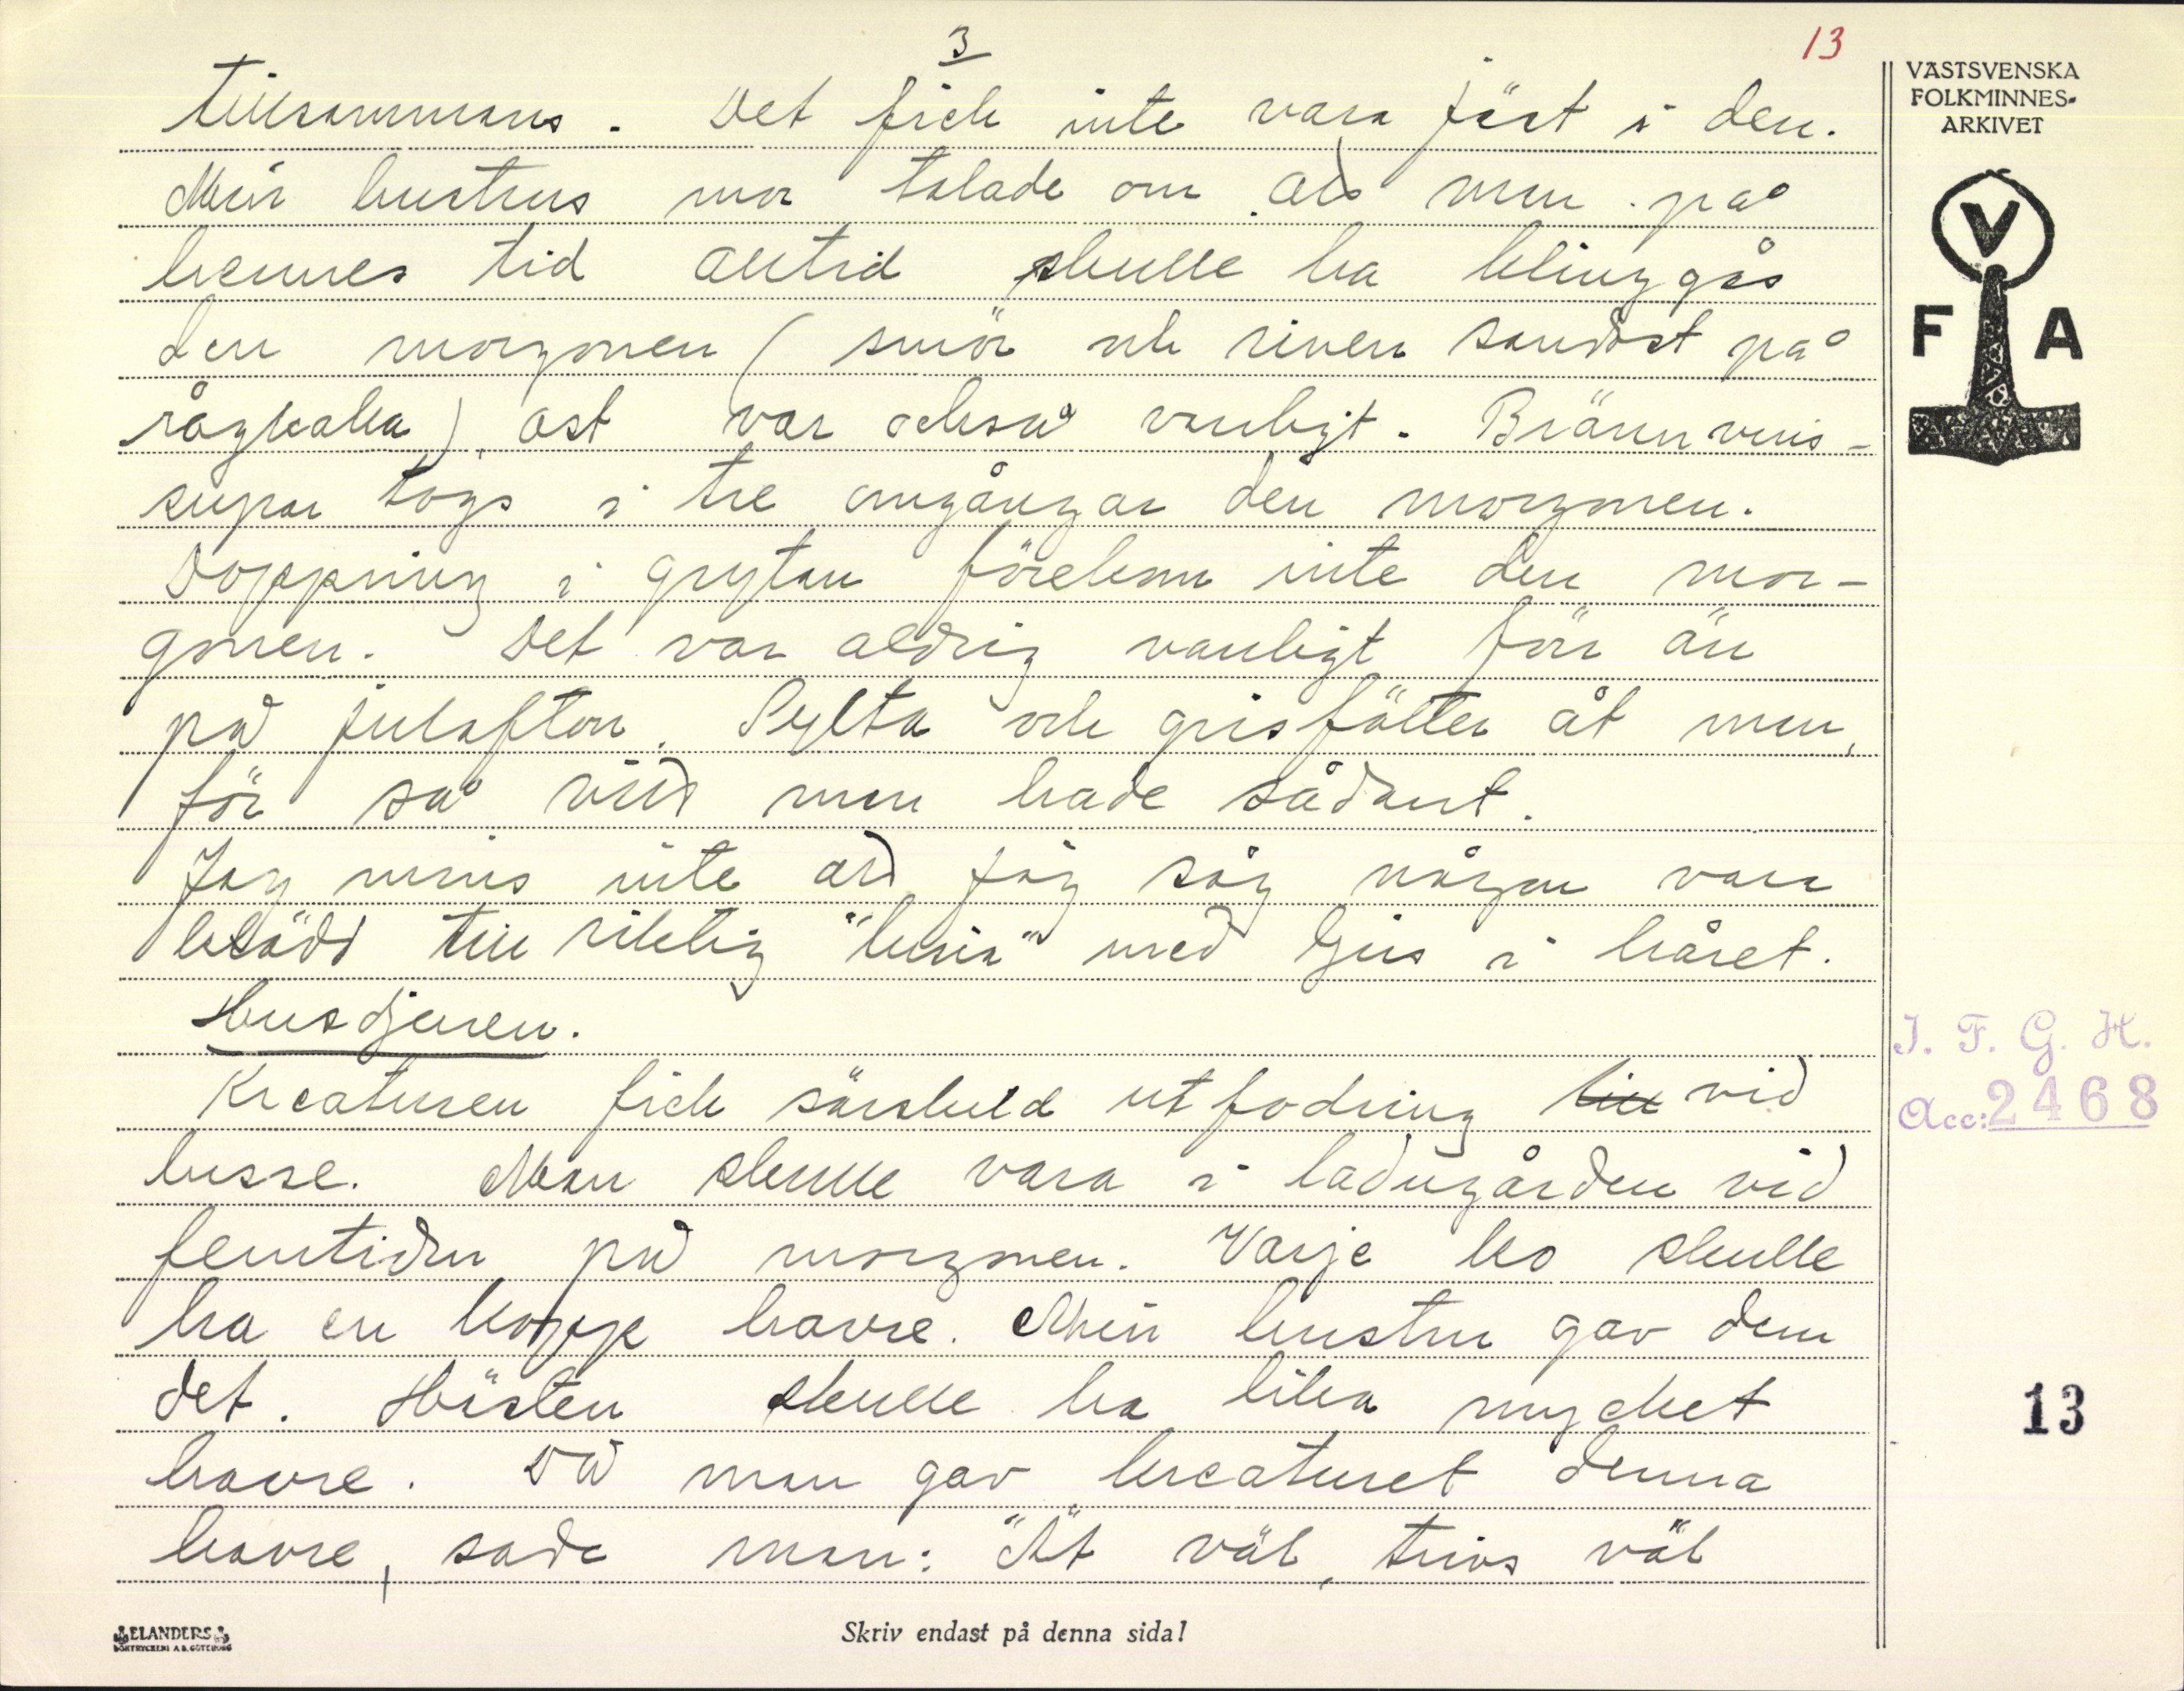 3
13
tillsammans. Det fick inte vara jäst i den.
Min hustrus mor talade om att man på
hennes tid alltid skulle ha klinggås
den morgonen (smör och riven sandost på
rågkaka), ost var också vanligt. Brännvins-
supar togs i tre omgångar den morgonen.
Doppning i grytan förekom inte den mor-
gonen. Det var aldrig vanligt förr än
på julafton. Sylta och grisfötter åt man,
för så vitt man hade sådant.
Jag minns inte att jag såg någon vara
klädd till riktig "lusia" med ljus i håret.
Husdjuren.
Kreaturen fick särskild utfodring till vid
lusse. Man skulle vara i ladugården vid
femtiden på morgonen. Varje ko skulle
ha en kopp havre. Min hustru gav dem
det. Hästen skulle ha lika mycket
havre. Då man gav kreaturet denna
havre, sade man: "Ät väl, trivs väl
VÄSTSVENSKA
FOLKMINNES-
ARKIVET
V
F A
I. F. G. H.
Acc: 2468
13
ELANDERS
BOKTRYCKERI A.B. GÖTEBORG
Skriv endast på denna sida!